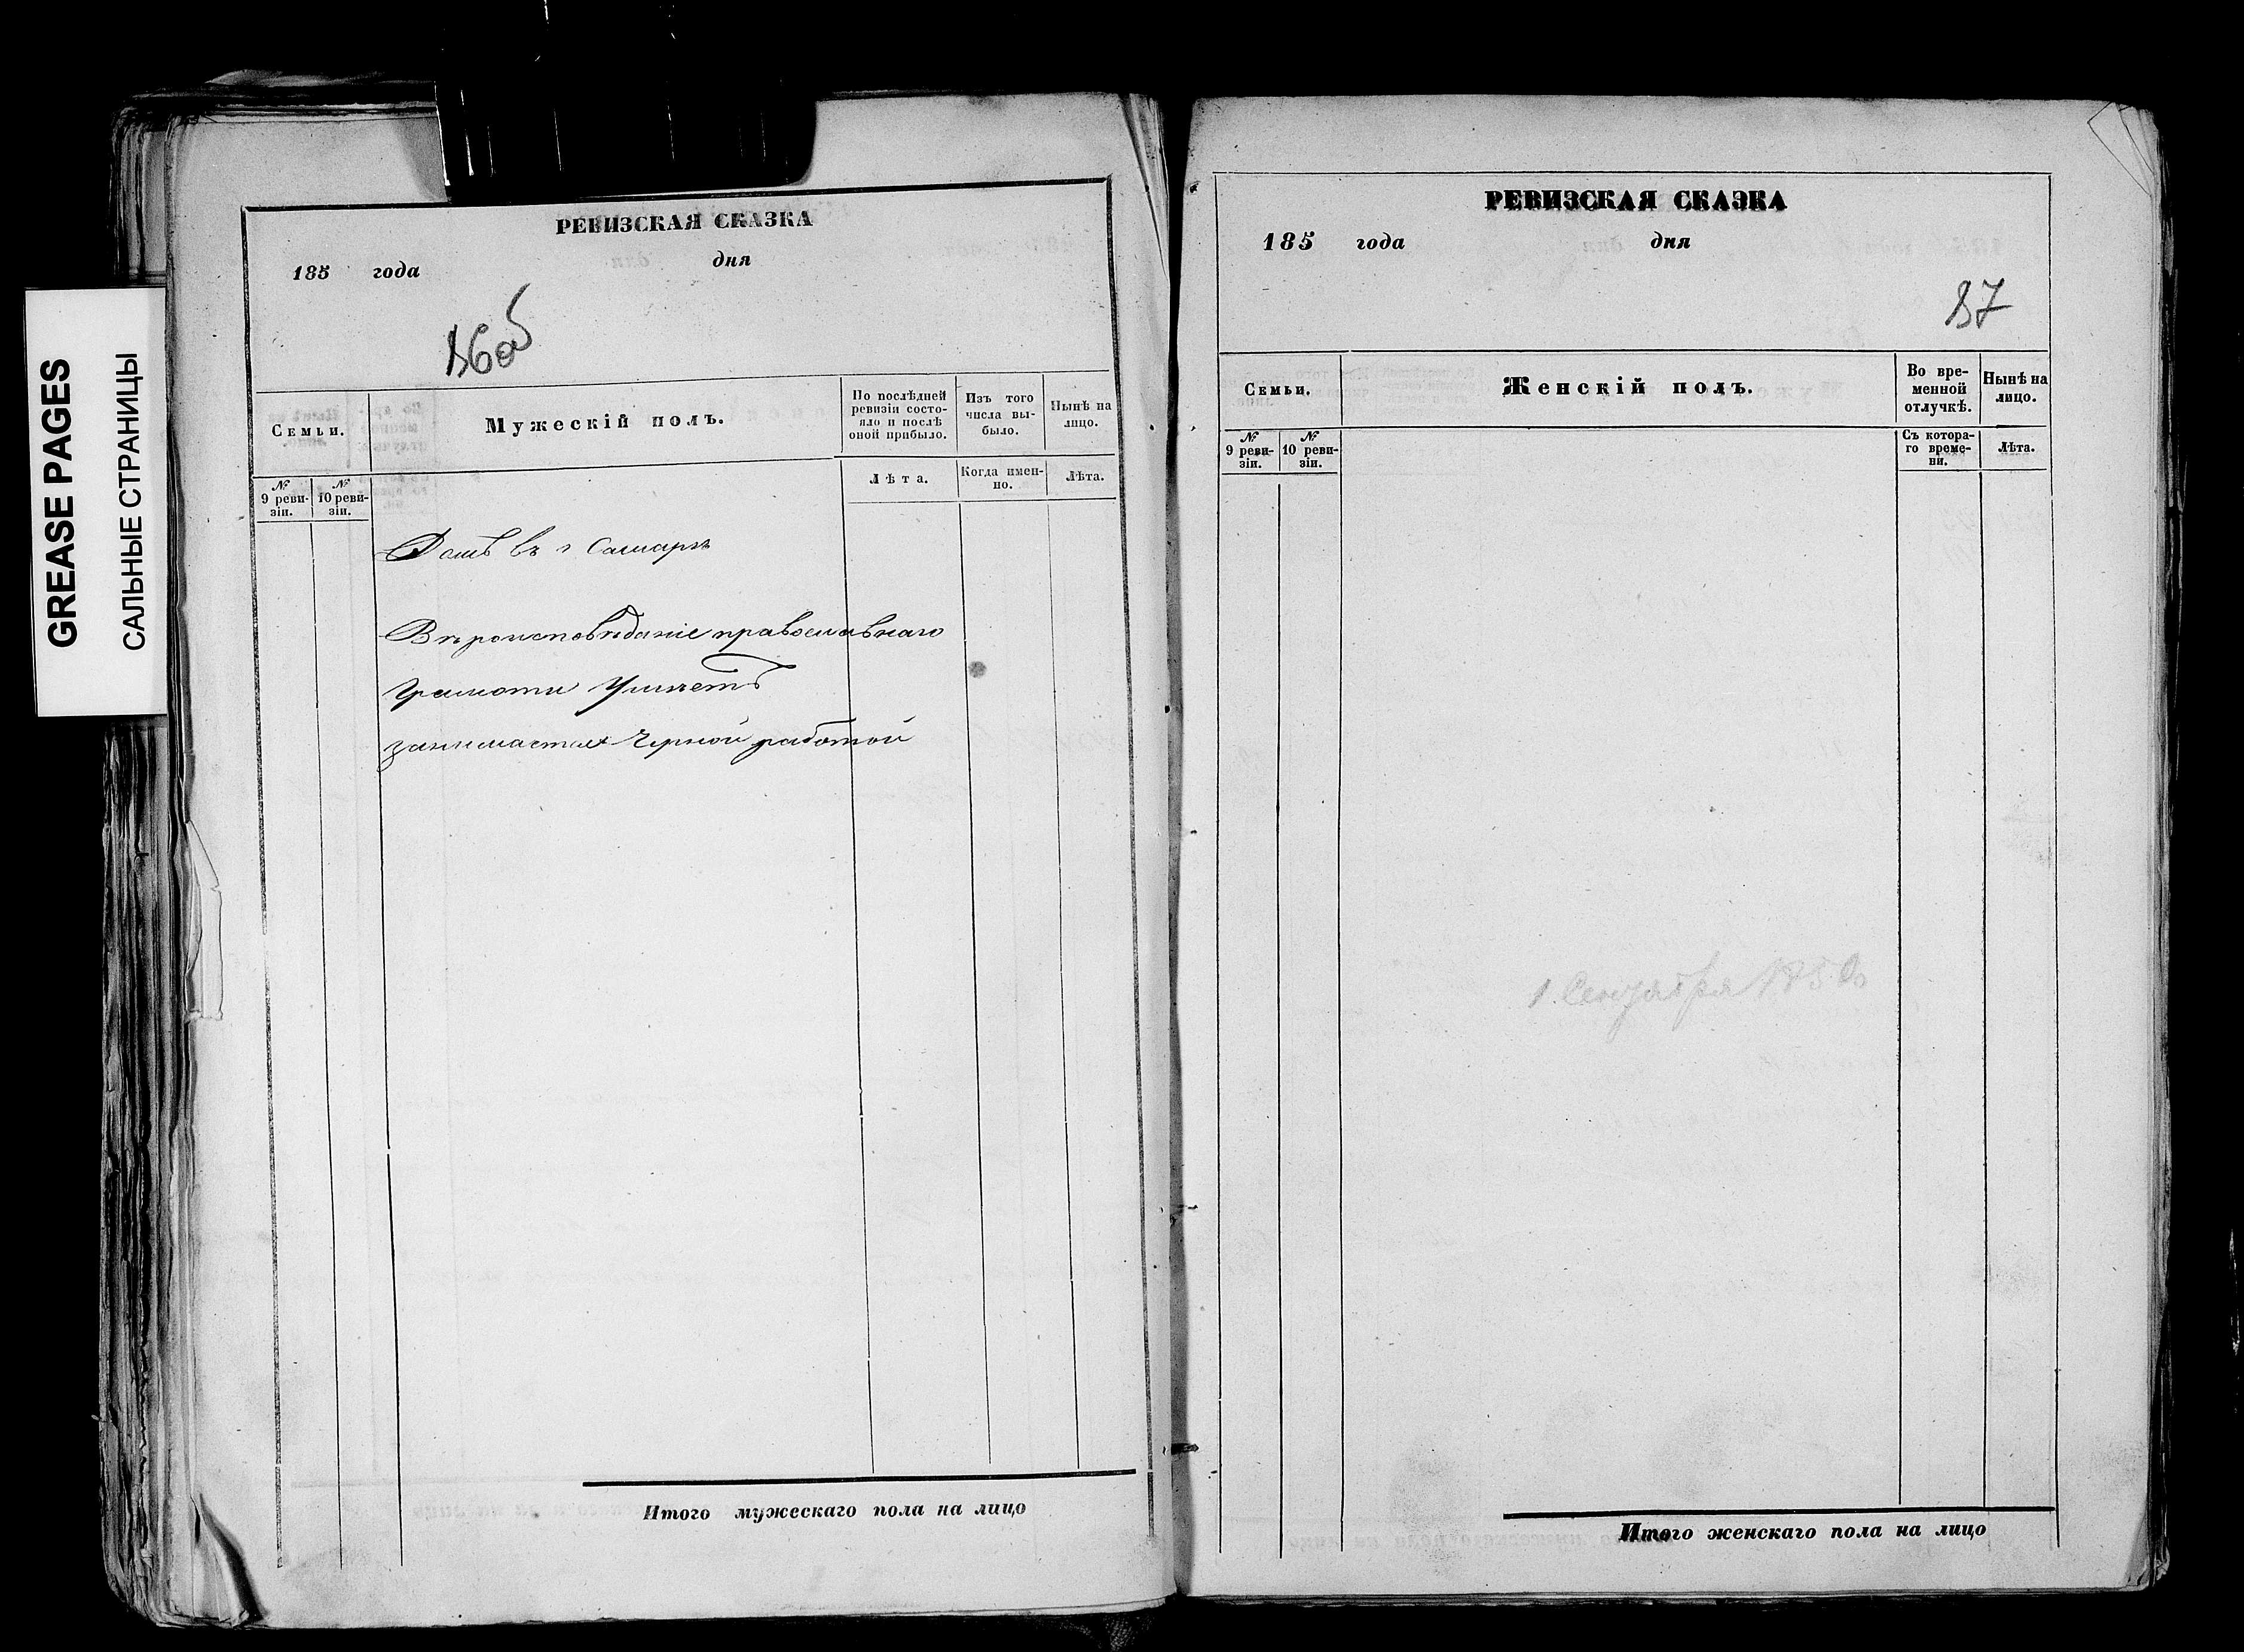 GREASE PAGES
САЛЬНЫЕ СТРАНИЦЫ
РЕВИЗСКАЯ СКАЗКА
185 года дня
Семьи.
Мужескій полъ.
По послѣдней ревизіи состо-
яло и послѣ оной прибыло.
Изъ того числа вы-
было.
Нынѣ на лицо.
№ 9 реви-
зіи.
№ 10 реви-
зіи.
Лѣта.
Когда имен-
но.
Лѣта.
Домъ въ г Самарѣ
Вѣроисповѣданіе православнаго
Грамоти Умѣетъ
занимается Черной работой
Итого мужескаго пола на лицо
РЕВИЗСКАЯ СКАЗКА
185 года дня
87
Семьи.
Женскій полъ.
Во вре-
менной
отлучкѣ.
Нынѣ на
лицо.
№ 9 реви-
зіи.
№ 10 реви-
зіи.
Съ котора-
го време-
ни.
Лѣта.
1 Сентября
Итого женскаго пола на лицо